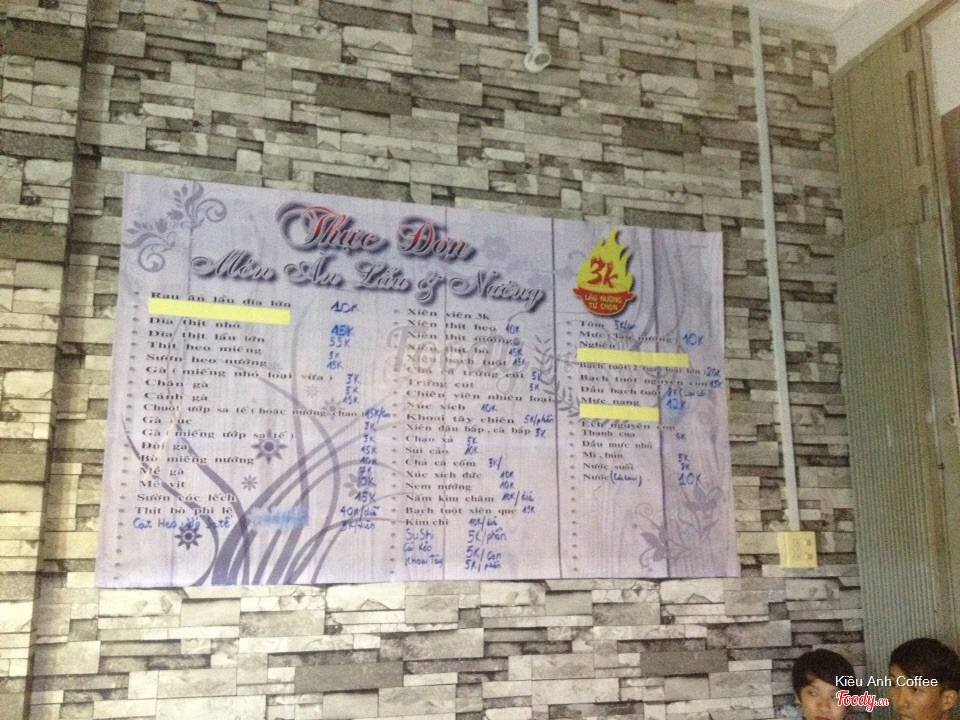 Thực Đơn
Món Ăn Lẩu & Nướng
3k
LẨU NƯỚNG
TỰ CHỌN
Rau ăn lẩu dĩa lớn 10K
Dĩa thịt nhỏ 45K
Dĩa thịt lẩu lớn 55K
Thịt heo miếng 3K
Sườn heo nướng 15K
Gà (miếng nhỏ loại vừa) 3K
Chân gà 5K
Cánh gà 15K
Chuột ướp sa tế (hoặc nướng chao) 15K/con
Gà cục 3K
Gà (miếng ướp sa tế) 3K
Đùi gà 15K
Bò miếng nướng 10K
Mề gà
Mề vịt
Sườn cóc lếch 15K
Thịt bò phi lê 40K/dĩa
Xiên viên 3k
Xiên thịt heo 10K
Xiên thịt nướng
Xiên thịt bò 15K
Xiên bạch tuột 15K
Chả cá trứng cút 5K
Trứng cút 3K
Chiên viên nhiều loại
Xúc xích 10K
Khoai tây chiên 5K/phần
Xiên đậu bắp, cà bắp 3K
Chạo xả 5K
Sủi cảo 20K
Chả cá cốm 3K/
Xúc xích đức 10K
Nem nướng 10K
Nấm kim châm 10K/dĩa
Bạch tuột xiên que 15K
Kim chi 10K/dĩa
SuShi 5K/phần
Cá Kèo 5K/con
Khoai Tây 5K/phần
Tôm 5K/con
Mực (lẩu, nướng) 10K
Nghêu
Bạch tuột nguyên con 15K
Đầu bạch tuột
Mực nang 12K
Ếch nguyên con
Thanh cua 5K
Đầu mực nhỏ
Mì, bún 5K
Nước suối
Nước 10K
Kiều Anh Coffee
Foody.vn